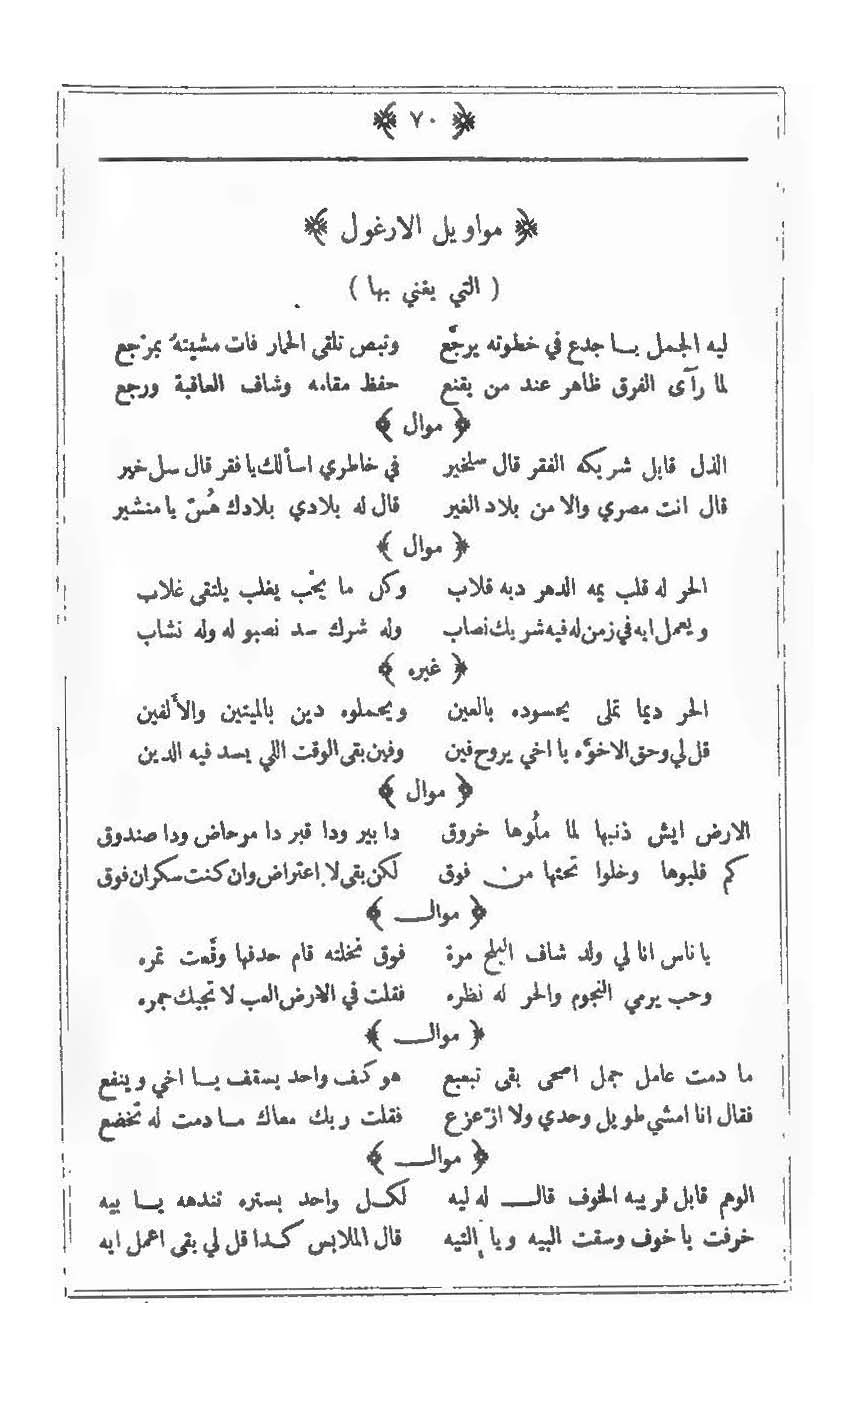 ﴿ ٧٠ ﴾
﴿ مواويل الارغول ﴾
( التي يغني بها )
ليه الجمل يا جدع في خطوته يرجّع وتبص تلقى الحمار فات مشيتهُ بمرْجع
لما رآى الفرق ظاهر عند من يقنع حفظ مقامه وشاف العاقبة ورجع
﴿ موال ﴾
الذل قابل شريكه الفقر قال سلخير في خاطري اسألك يا فقر قال سل خير
قال انت مصري والا من بلاد الغير قال له بلادي بلادك هُسّ يا منشير
﴿ موال ﴾
الحر له قلب يمه الدهر دبه قلاب وكل ما يخْب يغلب يلتقى غلاب
ويعمل ايه في زمن له فيه شريك نصاب وله شرك سد نصبو له وله نشاب
﴿ غيره ﴾
الحر ديما تملى يحسوده بالعين ويحملوه دين بالميتين والألفين
قل لي وحق الاخوّه يا اخي يروح فين وفين بقى الوقت اللي يسد فيه الدين
﴿ موال ﴾
الارض ايش ذنبها لما ملُوها خروق دا بير ودا قبر دا مرحاض ودا صندوق
كم قلبوها وخلوا تحتها من فوق لكن بقى لا اعتراض وان كنت سكران فوق
﴿ موال ﴾
يا ناس انا لي ولد شاف البلح مرة فوق نخلته قام حدفها وقّعت تمره
وحب يرمي النجوم والحر له نظره فقلت في الارض العب لا تجيك جمره
﴿ موال ﴾
ما دمت عامل جمل اصحى بقى تبعبع هو كف واحد يسقف يا اخي وينفع
فقال انا امشي طويل وحدي ولا ازّعزع فقلت ربك معاك ما دمت له تخضع
﴿ موال ﴾
الوهم قابل قريبه الخوف قال له ليه لكل واحد بستره تندهه يا بيه
خرفت يا خوف وسقت البيه ويا التيه قال الملابس كدا قل لي بقى اعمل ايه